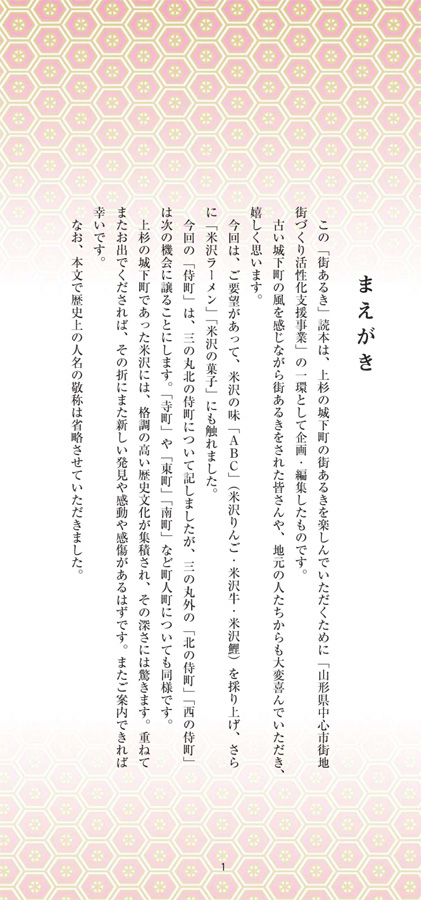 まえがき
この「街あるき」読本は、上杉の城下町の街あるきを楽しんでいただくために「山形県中心市街地
街づくり活性化支援事業」の一環として企画・編集したものです。
古い城下町の風を感じながら街あるきをされた皆さんや、地元の人たちからも大変喜んでいただき、
嬉しく思います。
今回は、ご要望があって、米沢の味「ＡＢＣ」（米沢りんご・米沢牛・米沢鯉）を採り上げ、さら
に「米沢ラーメン」「米沢の菓子」にも触れました。
今回の「侍町」は、三の丸北の侍町について記しましたが、三の丸外の「北の侍町」「西の侍町」
は次の機会に譲ることにします。「寺町」や「東町」「南町」など町人町についても同様です。
上杉の城下町であった米沢には、格調の高い歴史文化が集積され、その深さには驚きます。重ねて
またお出でくだされば、その折にまた新しい発見や感動や感傷があるはずです。またご案内できれば
幸いです。
なお、本文で歴史上の人名の敬称は省略させていただきました。
1